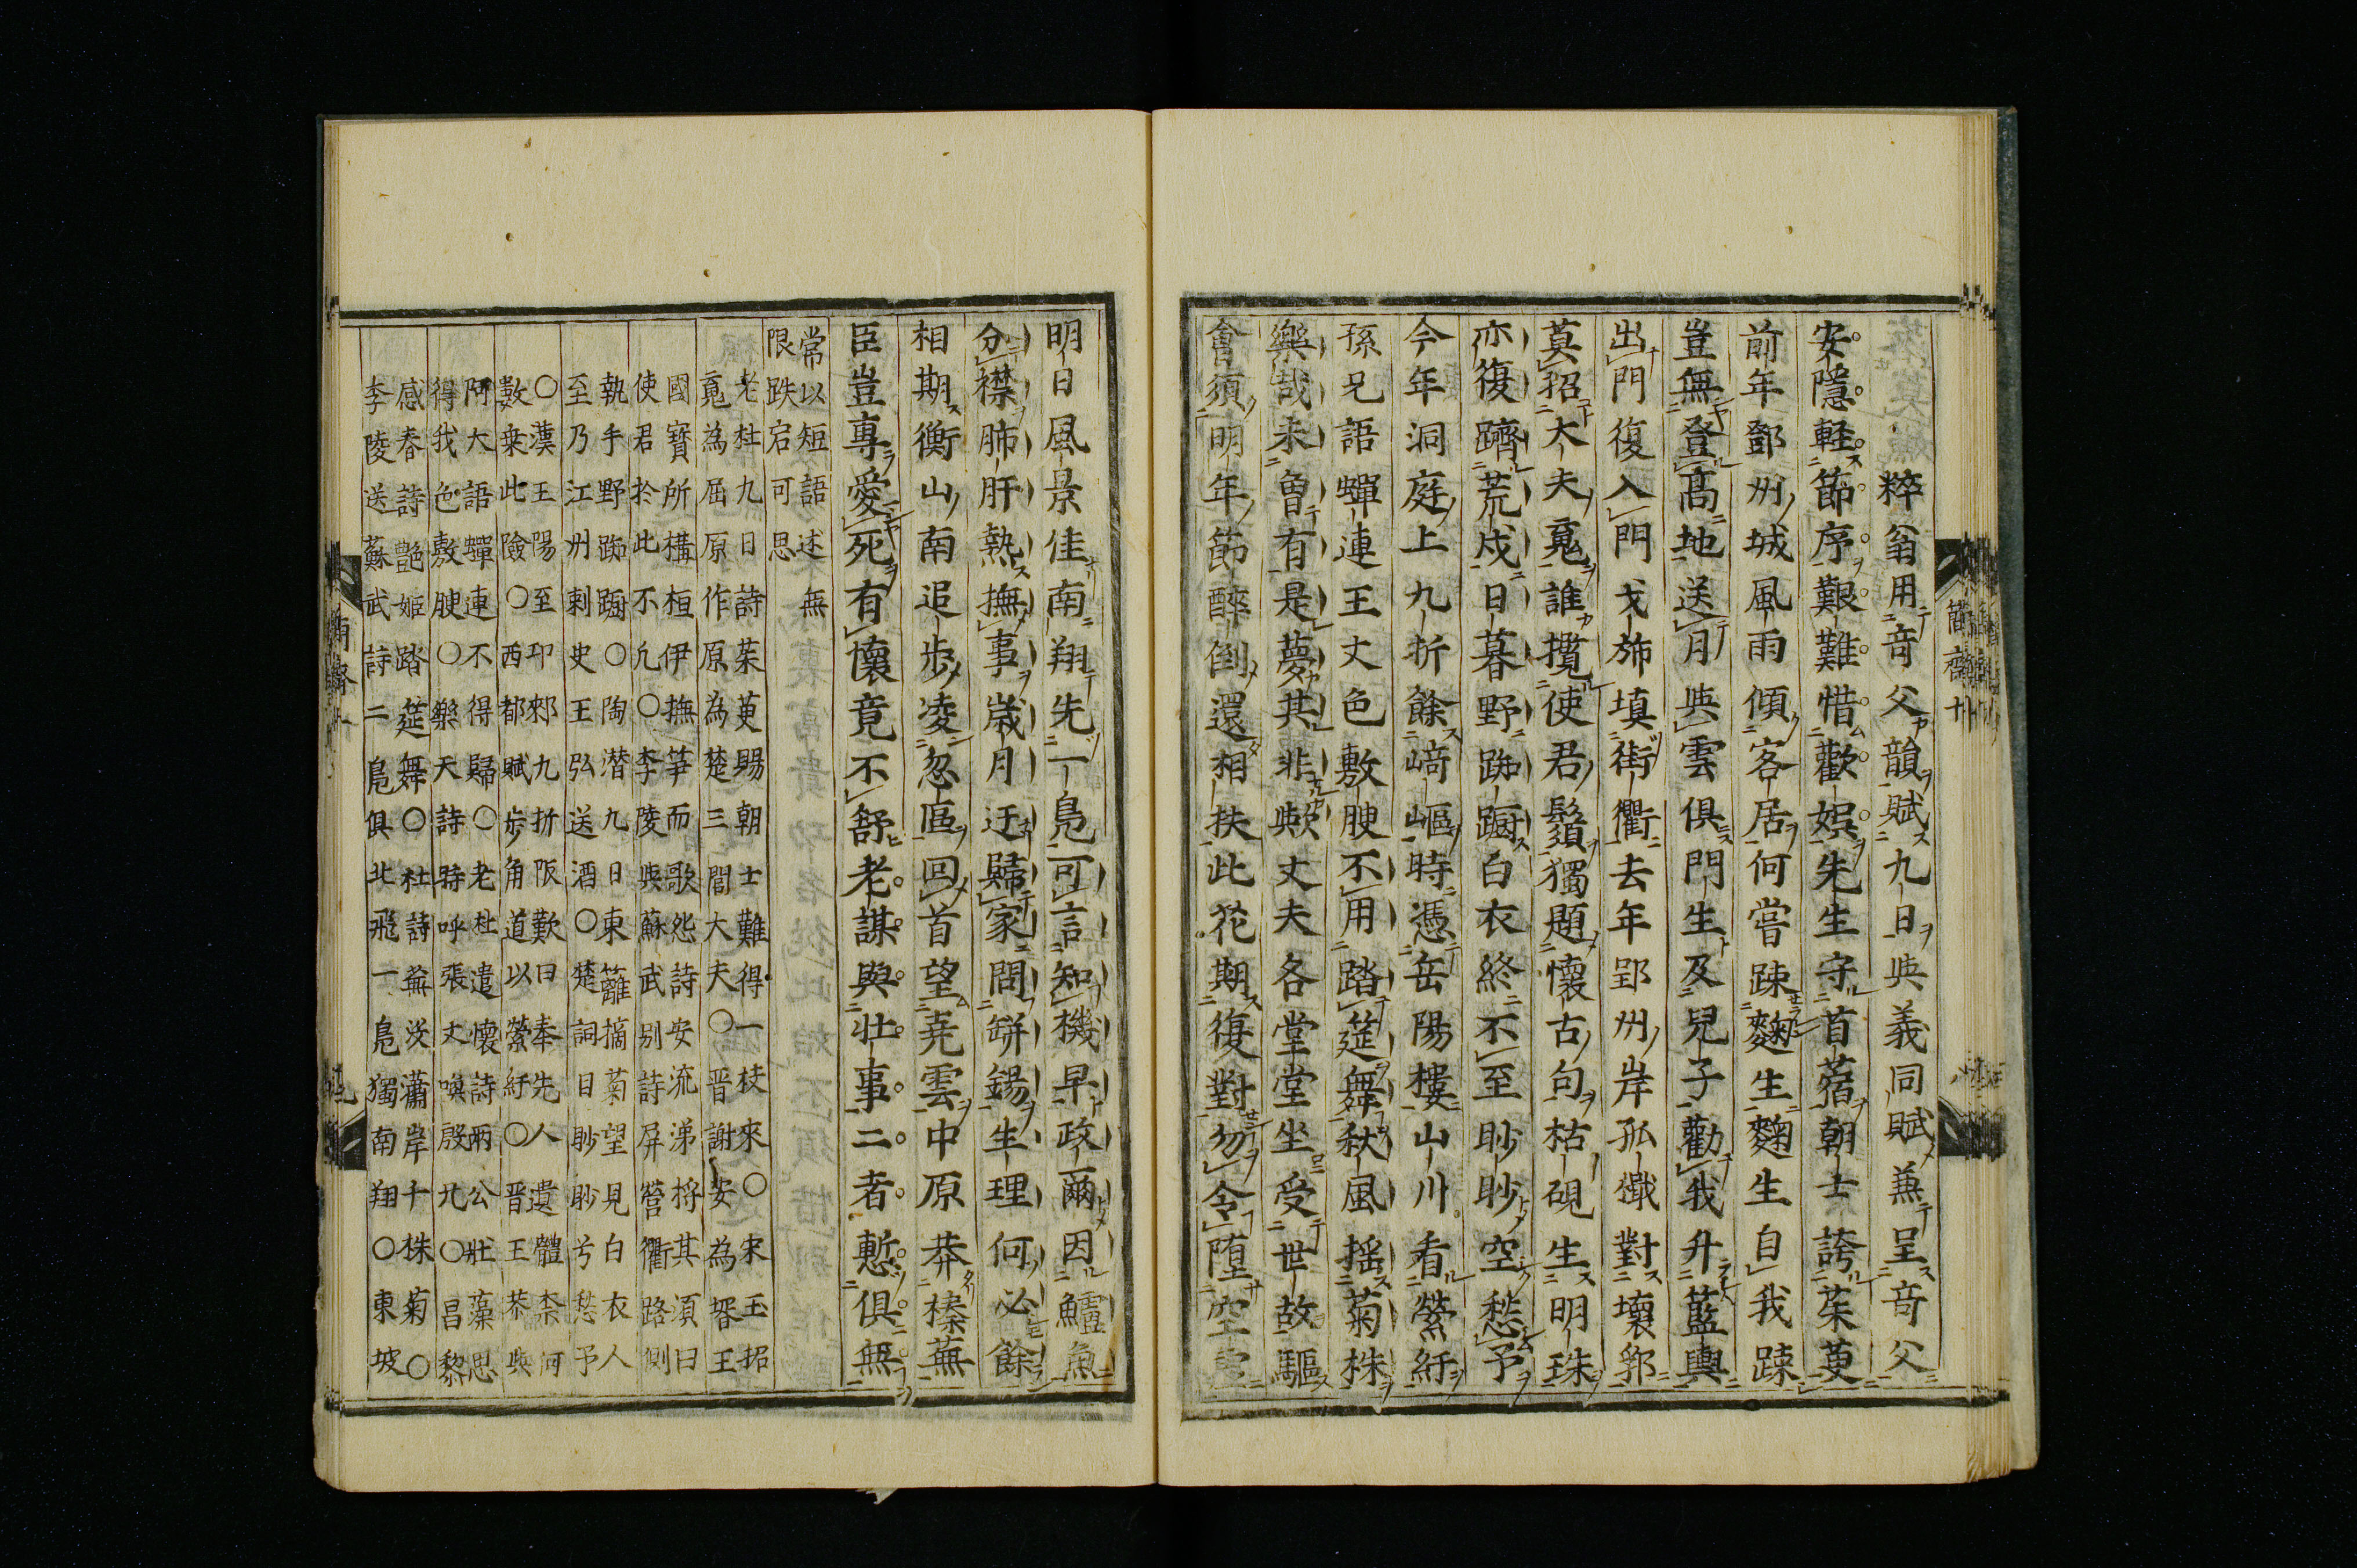 粹翁用奇父韻賦九日與義同賦兼呈奇父
安隱軽節序艱難惜歡娯先生守首蓿朝士誇茱萸
前年鄧州城風雨傾客居何嘗踈麴生麴生自我踈
豈無登髙地送月與雲俱門生及兒子勸我升藍輿
出門復入門戈斾填街衢去年郢州岸孤檝對壞郛
莫招大夫䰟誰攬使君鬚獨題懷古句枯硯生明珠
亦復躋荒戍日暮野踟蹰白衣終不至眇眇空愁予
今年洞庭上九折餘﨑嶇時憑岳陽樓山川看縈紆
孫兄語蟬連王丈色敷腴不用踏筵舞秋風揺菊株
樂哉未曽有是夢其非歟丈夫各堂堂坐受世故驅
會須明年節醉倒還相扶此花期復對勿令墮空
明日風景佳南翔先一鳬可言知機早政爾因鱸魚
分襟肺肝熱撫事歳月迂歸家問缾錫生理何必餘
相期衡山南追歩凌忽區回首望堯雲中原莽榛蕪
臣豈專愛死有懷竟不舒老謀與壮事二者慙俱無
常以短語述無
限跌宕可思
老杜九日詩茱萸賜朝士難得一枝來〇宋玉招
䰟為屈原作原為楚三閭大夫〇晋謝安為壻王
國寳所構桓伊撫筝而歌怨詩安流涕捋其須曰
使君於此不凢〇李陵與蘇武别詩屏營衢路側
執手野踟蹰〇陶潜九日東籬摘菊望見白衣人
至乃江州刺史王弘送酒〇楚詞目眇眇兮愁予
〇漢王陽至卭郲九折阪歎曰奉先人遺體柰何
數乗此險〇西都賦歩角道以縈紆〇晋王恭與
阿大語蟬連不得歸〇老杜遣懷詩兩公壮藻思
得我色敷腴〇樂天詩時呼張丈喚殷兄〇昌黎
感春詩艶姫踏筵舞〇杜詩蕪没瀟岸十株菊〇
李陵送蘇武詩二鳬俱北飛一鳬獨南翔〇東坡